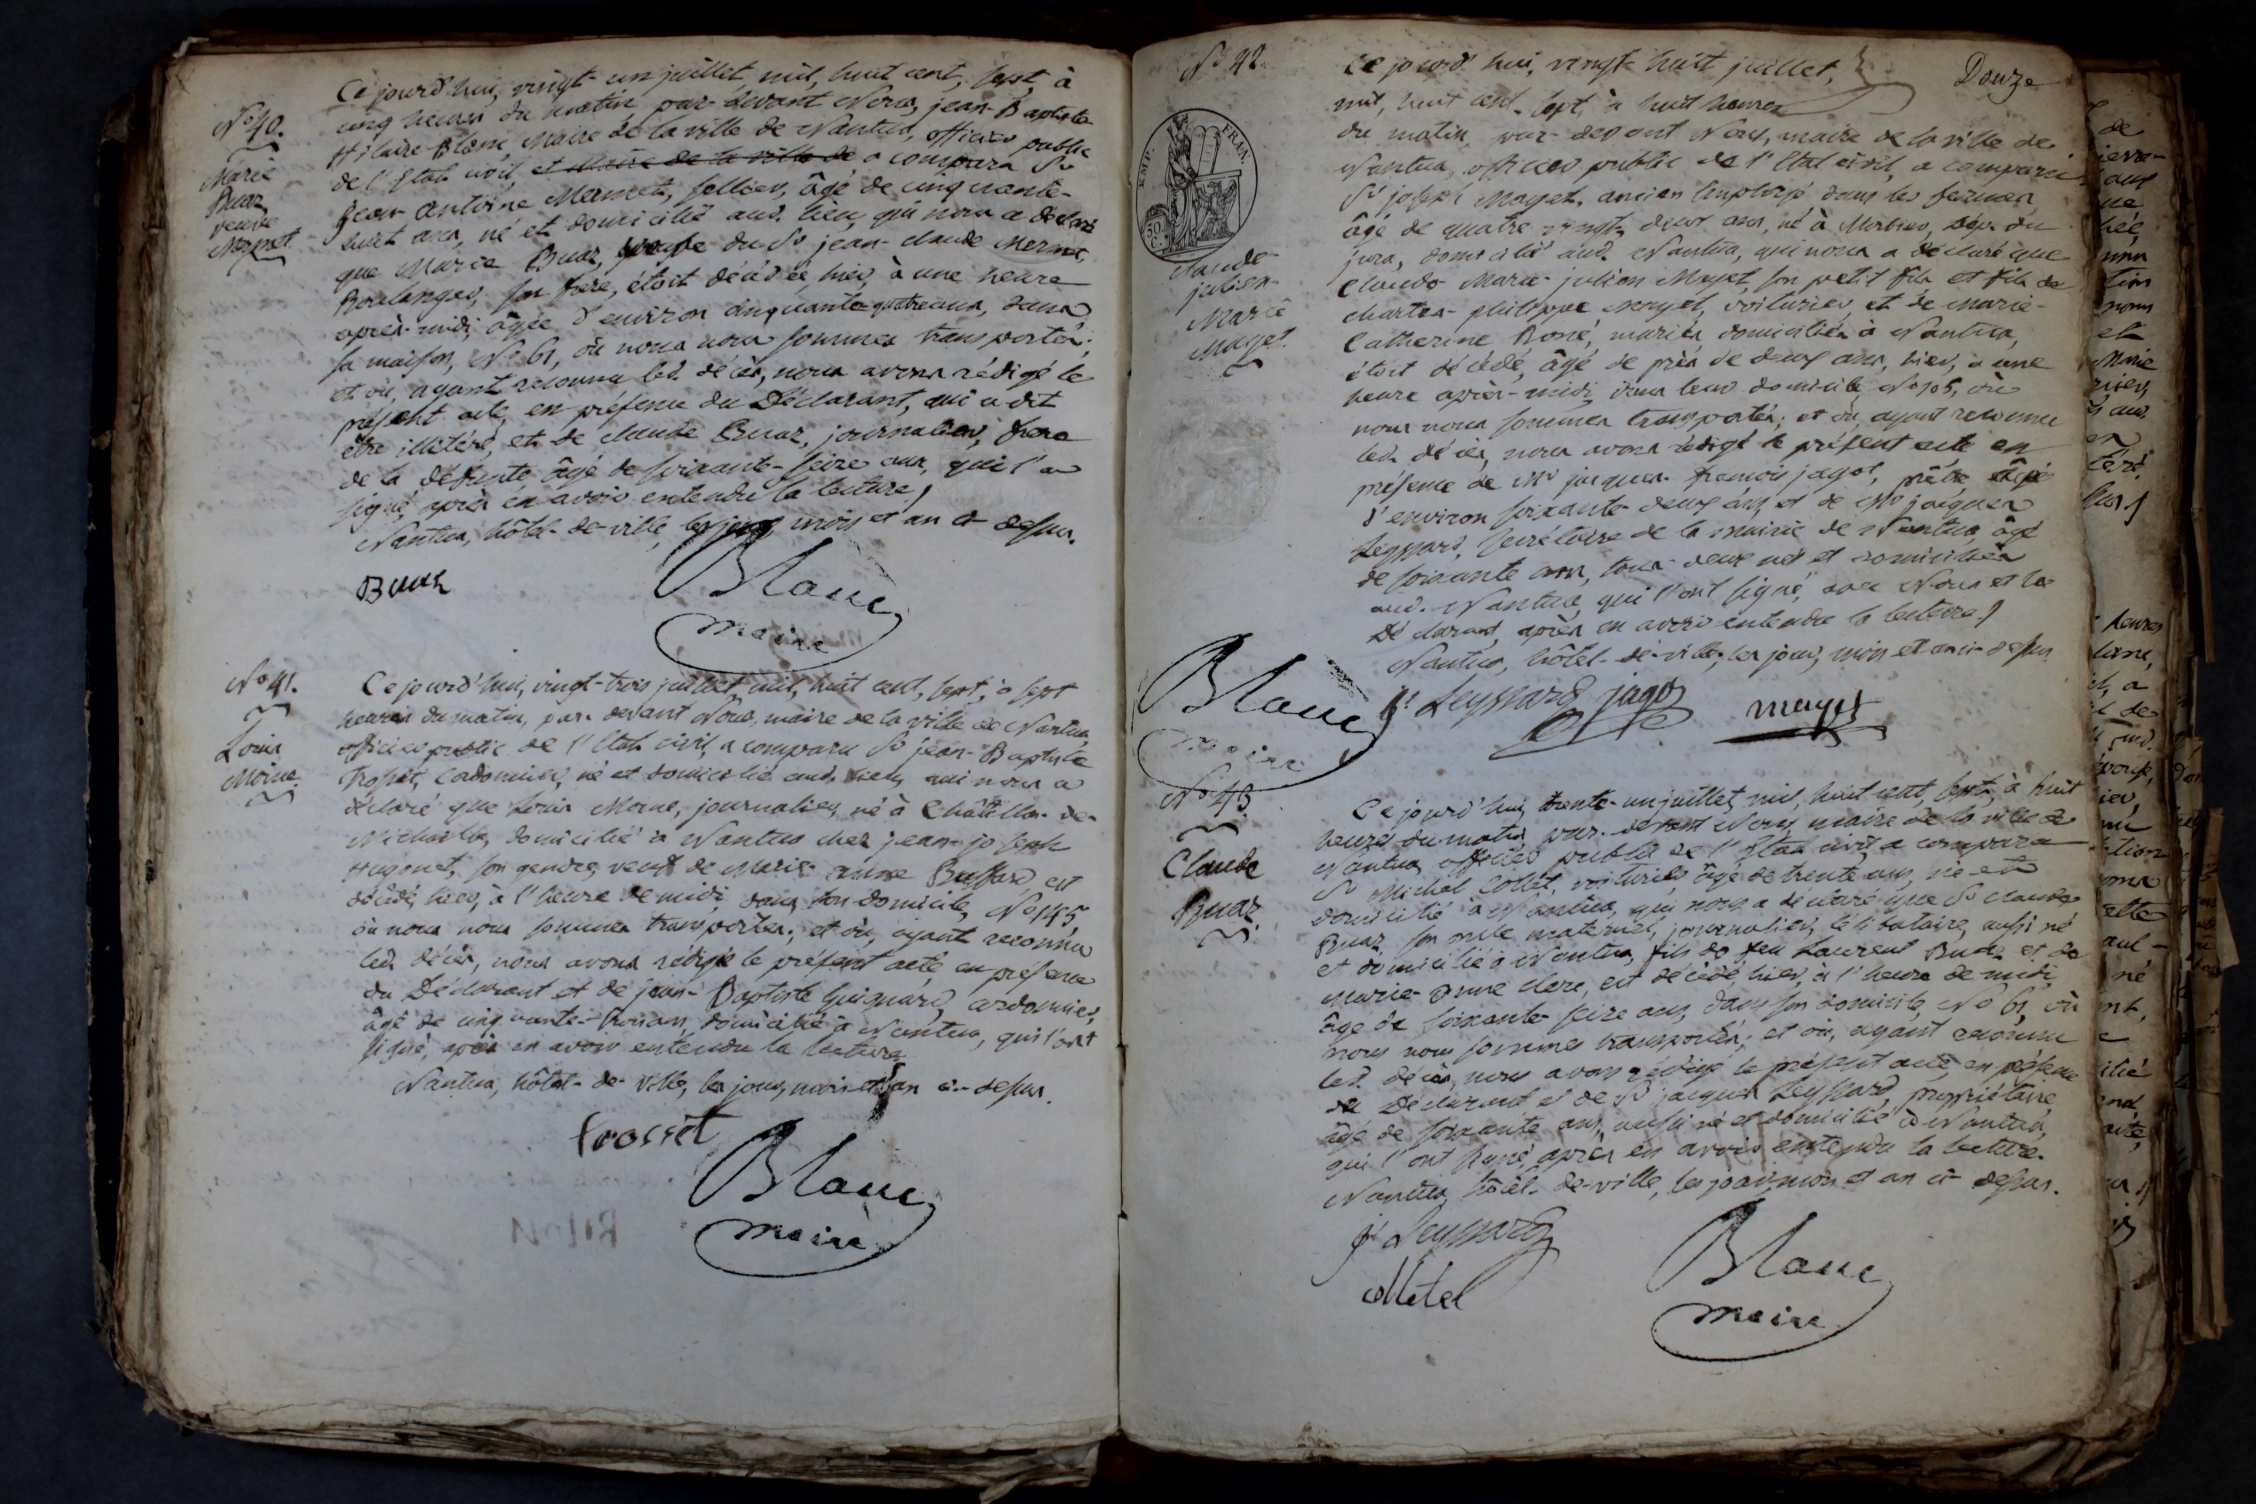 Ce jourd'hui, vingt-un juillet mil, huit cent, sept, à
cinq heures du matin par-devant Nous, jean-Baptiste
Hilaire Blanc Maire de la ville de Nantua, officier public
de l'Etat civil et Maire de la ville de a comparu Sr
Jean-antoine Mermet, sellier, âgé de cinquante-
huit ans, né et domicilié aud. lieu, qui nous a déclaré
que Marie Buaz, veuve du Sr jean-claude Mermet,
Boulanger, son frere, étoit décédée, hier, à une heure
après-midi, âgée d'environ cinquante-quatre ans, dans
sa maison, No 61, où nous nous sommes transportés;
et où, ayant reconnu led. décès, nous avons rédigé le
présent acte, en présence du Déclarant, qui a dit
être illitéré, et de claude Buaz, journalier, frere
de la défunte âgé de soixante-seize ans, qui l'a
signé, après en avoir entendu la lecture,
Nantua, hôtel-de-ville, les jour, mois et an ci-dessus.
No 40.
Marie
Buaz
veuve
Buaz
Blanc
maire
No 41.
Louis
Moine
Ce jourd'hui, vingt-trois juillet, mil, huit cent, sept, à sept
heures du matin, par-devant Nous, maire de la ville de Nantua,
officier public de l'Etat civil, a comparu Sr jean-Baptiste
Trosset, Cordonnier, né et domicilié aud. lieu, qui nous a
déclaré que Louis Moine, journalier, né à Châtillon-de-
Michaille, domicilié à Nantua chez jean-joseph
Hugonet, son gendre, veuf de Marie-anne Buffard, est
décédé, hier, à l'heure de midi, dans son domicile, No 145,
où nous nous sommes transportés; et où, ayant reconnu
led. décès, nous avons rédigé le présent acte, en présence
du Déclarant et de jean-Baptiste Guignard, cordonnier,
âgé de cinquante-trois ans, domicilié à Nantua, qui l'ont
signé, après en avoir entendu la lecture
Nantua, hôtel-de-ville, les jour, mois et an ci-dessus.
trosset
Blanc
maire
No 42.
Douze
EMP. FRAN.
50 c.
Claude-
julien-
Marie
Mayet.
Ce jourd'hui, vingt-huit juillet,
mil, huit cent, sept, à huit heures
du matin, par-devant Nous, maire de la ville de
Nantua, officier public de l'Etat civil, a comparu
Sr joseph Mayet, ancien Employé dans les fermes,
âgé de quatre-vingt-deux ans, né à Morbier, dép. du
jura, domicilié aud. Nantua, qui nous a déclaré que
Claude-Marie-julien Mayet, son petit fils et fils de
charles-philippe Mayet, voiturier, et de Marie-
Catherine Roné, mariés, domiciliés à Nantua,
étoit décédé, âgé de près de deux ans, hier, à une
heure après-midi, dans leur domicile, No 105, où
nous nous sommes transportés; et où, ayant reconnu
led. décès, nous avons rédigé le présent acte en
présence de Mr jacques-françois jagot, prêtre, âgé
d'environ soixante-deux ans, et de Mr jacques
Leyssard, Secrétaire de la mairie de Nantua, âgé
de soixante ans, tous-deux nés et domiciliés
aud. Nantua, qui l'ont signé, avec Nous et le
Déclarant, après en avoir entendu la lecture,
Nantua, hôtel-de-ville, les jour, mois et an ci-dessus
Blanc
maire
Jq Leyssard
jagot
mayet
No 43.
Claude
Buaz.
Ce jourd'hui, trente-un juillet, mil, huit cent, sept, à huit
heures du matin, par-devant Nous, maire de la ville de
Nantua, officier public de l'Etat civil, a comparu
Sr Michel Collet, voiturier, âgé de trente ans, né et
domicilié à Nantua, qui nous a déclaré que Sr claude
Buaz, son oncle maternel, journalier, célibataire, aussi né
et domicilié à Nantua, fils de feu Laurent Buaz et de
Marie-anne clerc, est décédé, hier, à l'heure de midi,
âgé de soixante-seize ans, dans son domicile, No 61, où
nous nous sommes transportés; et où, ayant reconnu
led. décès, nous avons rédigé le présent acte, en présence
du Déclarant et de Sr jacques Leyssard, propriétaire,
âgé de soixante ans, aussi né et domicilié à Nantua,
qui l'ont signé, après en avoir entendu la lecture.
Nantua, hôtel-de-ville, les jour, mois et an ci-dessus.
Jq Leyssard
Blanc
maire